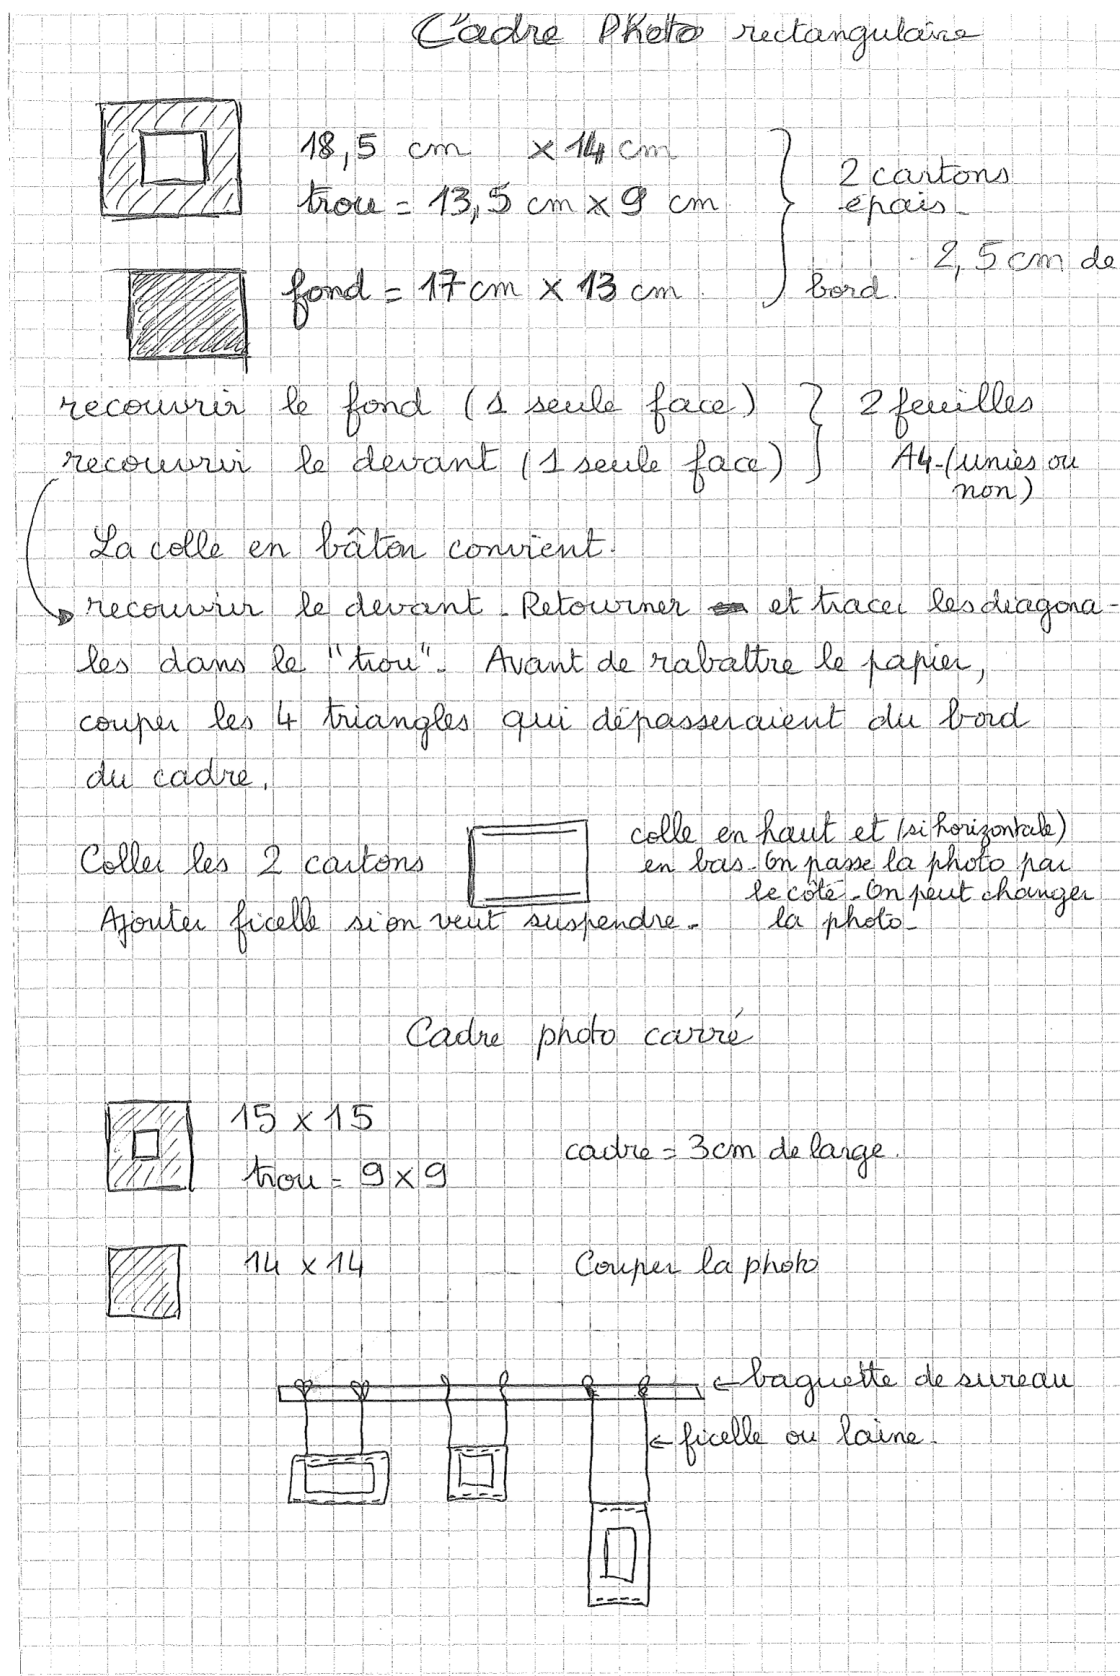 Cadre Photo rectangulaire
18,5 cm x 14 cm
trou = 13,5 cm x 9 cm
2 cartons
épais.
2,5 cm de
bord.
fond = 17 cm x 13 cm
recouvrir le fond (1 seule face)
recouvrir le devant (1 seule face)
2 feuilles
A4-(unies ou
non)
La colle en bâton convient.
recouvrir le devant. Retourner et tracer les diagona-
les dans le "trou". Avant de rabattre le papier,
couper les 4 triangles qui dépasseraient du bord
du cadre.
Coller les 2 cartons
colle en haut et (si horizontale)
en bas. On passe la photo par
le côté. On peut changer
la photo.
Ajouter ficelle si on veut suspendre.
Cadre photo carré
15 x 15
trou = 9 x 9
cadre = 3 cm de large.
14 x 14
Couper la photo
baguette de sureau
ficelle ou laine.